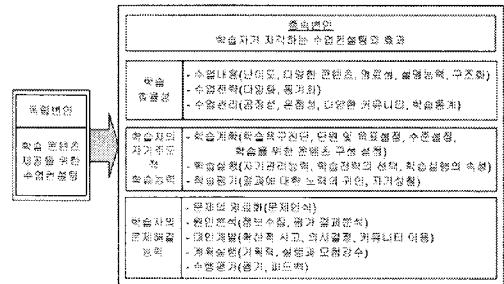 종속변인
학습자가 지각하는 수업컨설팅의 효과
독립변인
학습 콘텐츠
제공을 위한
수업컨설팅
학습
효율성
- 수업내용(난이도, 다양한 콘텐츠, 명료성, 설명능력, 구조화)
- 수업전략(다양화, 동기화)
- 수업관리(공정성, 온정성, 다양한 커뮤니티, 학습통계)
학습자의
자기주도
적
학습능력
- 학습계획(학습욕구진단, 단원 및 목표설정, 수준설정,
학습을 위한 콘텐츠 구성 설정)
- 학습실행(자기관리능력, 학습전략의 선택, 학습실행의 속성)
- 학습평가(결과에 대한 노력의 귀인, 자기성찰)
학습자의
문제해결
능력
- 문제의 명료화(문제인식)
- 원인분석(정보수집, 평가 결과분석)
- 대안개발(확산적 사고, 의사결정, 커뮤니티 이용)
- 계획실행(기획력, 실행과 모험감수)
- 수행평가(평가, 피드백)